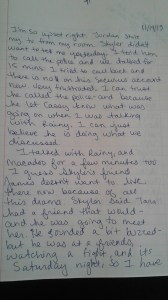 11/19/13
I'm so upset right. Jordan said
my to from my room. Skyler didn't
want to see me yesterday. I told him
to call the police and we talked for
15 min. I tried to call back and
there is not on this serious second
Now very frustrated. I can trust
he called the police and because
he let Casey know what was
going on when I was talking
with Ranny. I can just
believe he is doing what we
discussed.
I talked with Ranny, and
Mercedes for a few minutes too
I guess Skyler's friend
Jamie doesn't want to live
there now because of all
this drama. Skyler said Jane
had a friend that would
and he was going to meet
her. He sounded a bit buzzed
but he was at a friends,
watching a fight, and it's
Saturday night, so I have